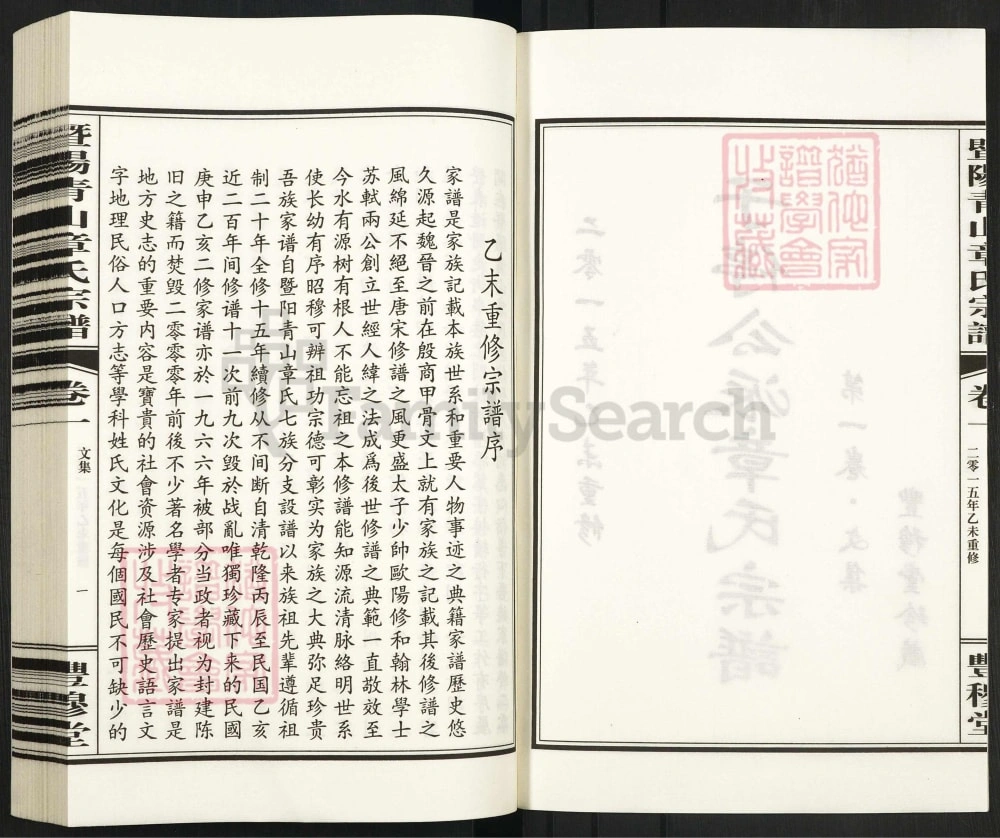 暨陽青山章氏宗譜
卷一
二零一五年乙未重修
豐穆堂
公派章氏宗譜
第一卷·文集
二零一五年乙未重修
豐穆堂珍藏
猶他家
譜學會
之珍藏
乙未重修宗譜序
家譜是家族記載本族世系和重要人物事迹之典籍家譜歷史悠
久源起魏晉之前在殷商甲骨文上就有家族之記載其後修譜之
風綿延不絕至唐宋修譜之風更盛太子少帥歐陽修和翰林學士
苏軾兩公創立世經人緯之法成爲後世修譜之典範一直敬效至
今水有源树有根人不能忘祖之本修譜能知源流清脉絡明世系
使长幼有序昭穆可辨祖功宗德可彰实为家族之大典弥足珍贵
吾族家谱自暨阳青山章氏七族分支設譜以来族祖先輩遵循祖
制二十年全修十五年續修从不间断自清乾隆丙辰至民国乙亥
近二百年间修谱十一次前九次毁於战亂唯獨珍藏下来的民國
庚申乙亥二修家谱亦於一九六六年被部分当政者视为封建陈
旧之籍而焚毁二零零零年前後不少著名學者专家提出家譜是
地方史志的重要内容是寶貴的社會資源涉及社會歷史語言文
字地理民俗人口方志等學科姓氏文化是每個國民不可缺少的
暨陽青山章氏宗譜
卷一
文集
一
豐穆堂
FamilySearch